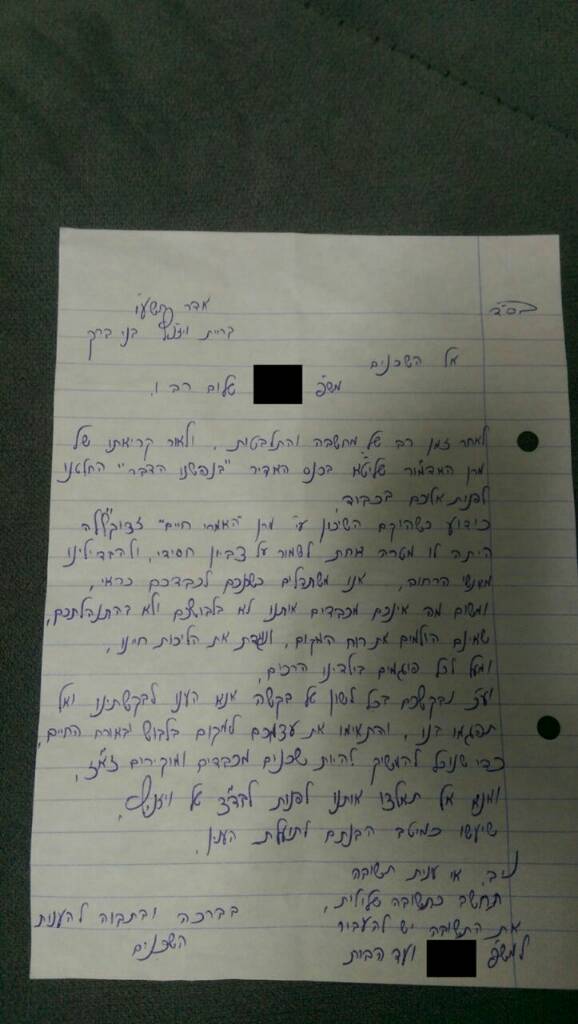 בס״ד
אדר תשע״ו
קרית ויז'ניץ בני ברק
אל השכנים
משפ' שלום רב ו.
לאחר זמן רב של מחשבה והתלבטות, ולאור קריאתו של
מרן האדמו״ר שליט״א בכנס האדיר "בנפשנו הדבר" החלטנו
לפנות אליכם בכבוד
כידוע כשהוקם השיכון ע״י מרן "האמרי חיים" זצוק״ללה״ה
היתה לו מטרה אחת לשמור על צביון חסידי, ולהבדילינו
מאנשי הרחוב, אנו משתדלים כשכנים לכבדכם כראוי,
ומשום מה אינכם מכבדים אותנו לא בלבושכם ולא בהתנהלתכם,
שאינם הולמים את רוח המקום, ונוגדת את הליכות חיינו,
ומעל לכל פוגמים בילדינו הרכים,
וע״ז נבקשכם בכל לשון של בקשה אנא הענו לבקשתינו ואל
תפגמו בנו, והתאימו את עצמכם למקום בלבוש ובאורח החיים,
כדי שנוכל להמשיך להיות שכנים מכבדים ומוקירים זא״ז,
ואנא אל תאלצו אותנו לפנות לבד״צ של ויזניץ,
שיעשו כמיטב הבנתם לתועלת הענין.
נ.ב. אי ענית תשובה
תחשב כתשובה שלילית,
את התשובה יש להעביר
למשפ' ועד הבית
בברכה ובתקוה להענות
השכנים